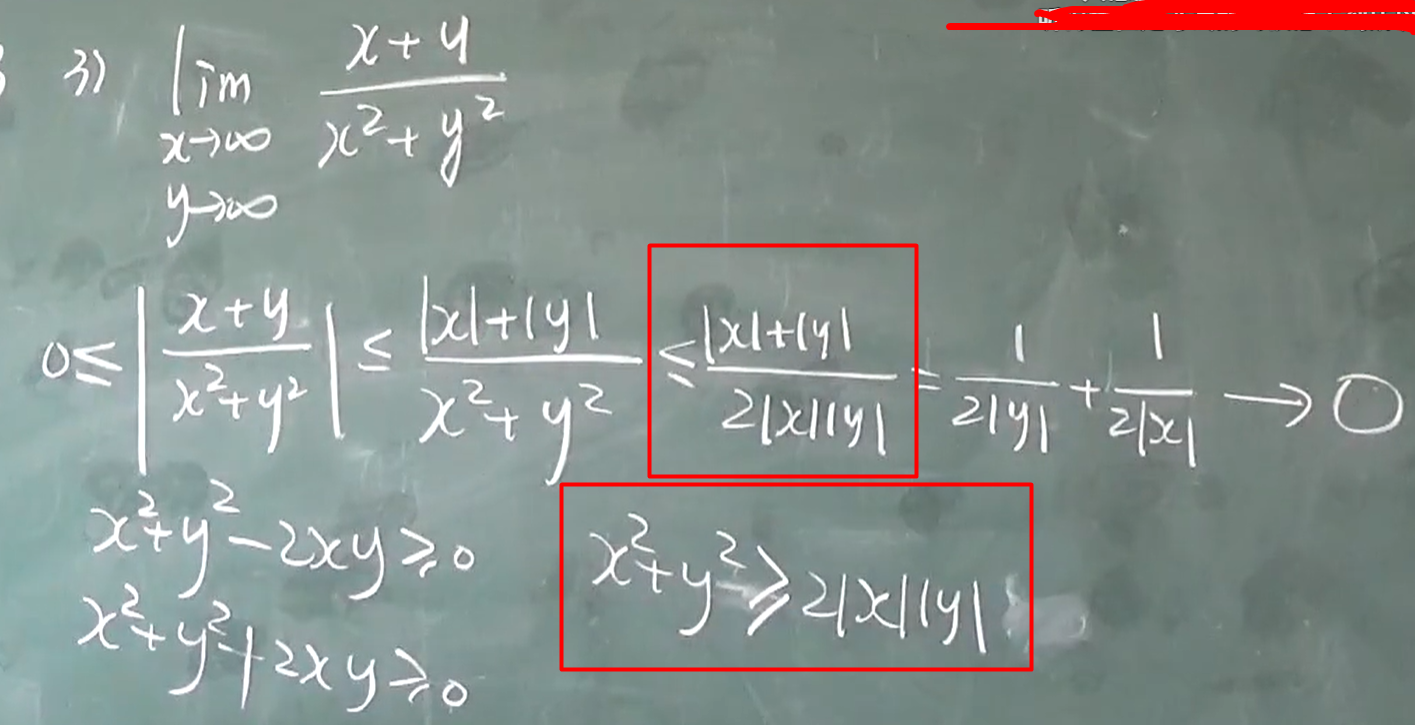 3) lim x+y / x²+y²
x→∞
y→∞
0≤ |x+y / x²+y²| ≤ |x|+|y| / x²+y² ≤ |x|+|y| / 2|x||y| = 1 / 2|y| + 1 / 2|x| → 0
x²+y²-2xy≥0
x²+y²≥2|x||y|
x²+y²+2xy≥0